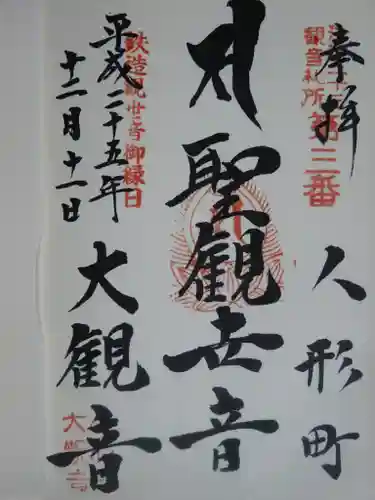 奉拝
観音札所
第三番
人形町
聖観世音
平成二十五年
十二月十一日
鉄造観世音御縁日
大観音
大観音